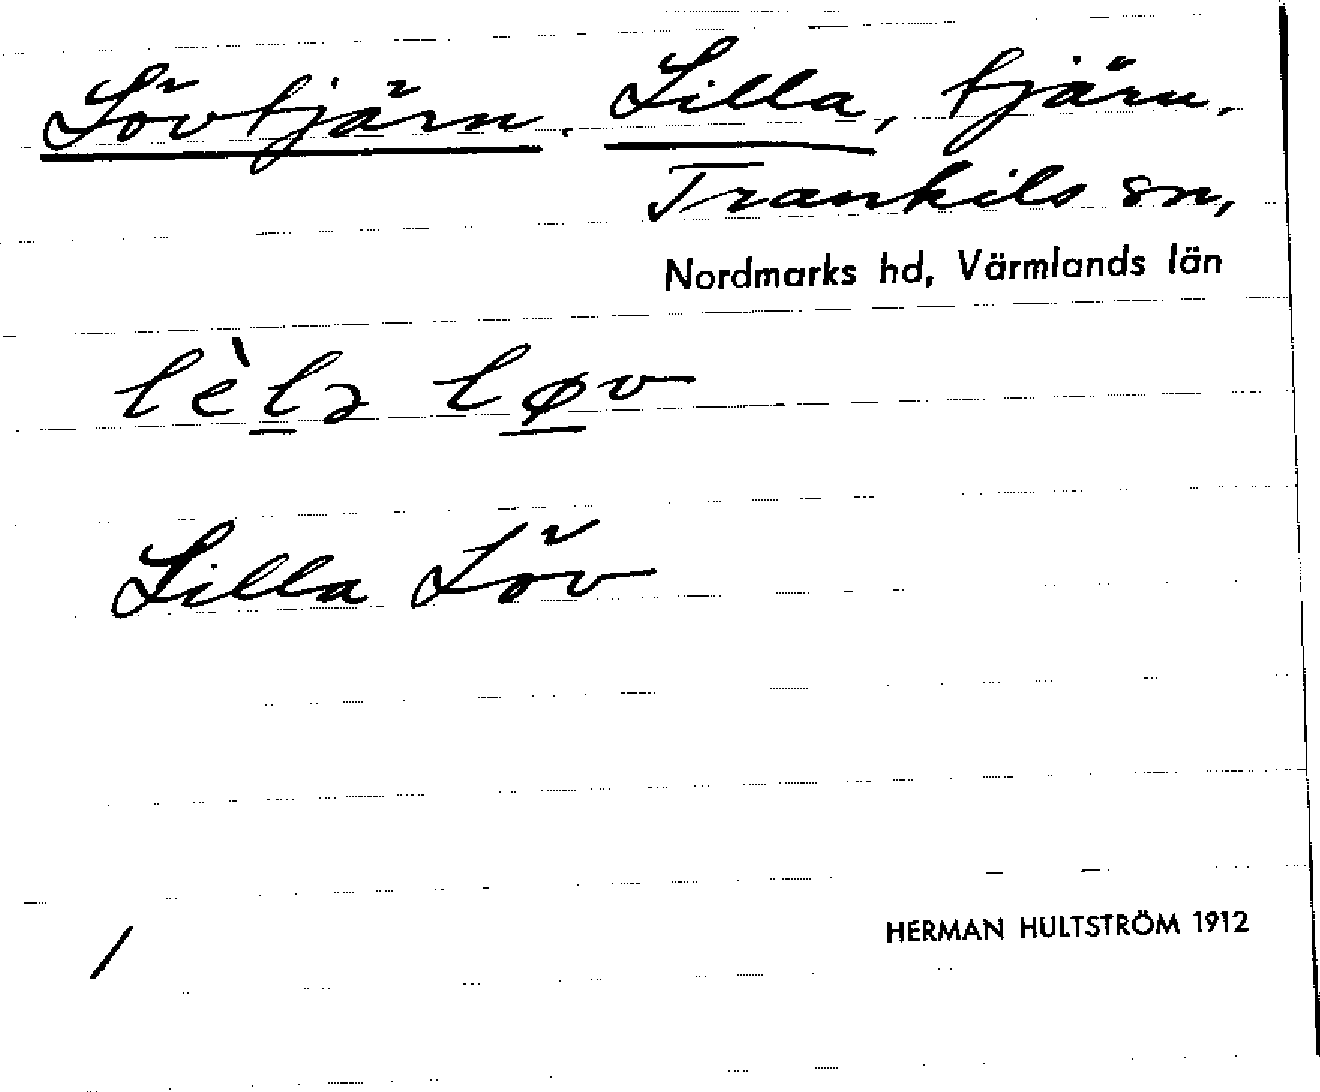 Lövtjärn. Lilla, tjärn,
Trankils sn,
Nordmarks hd, Värmlands län
lèlɔ løv
Lilla Löv
/
HERMAN HULTSTRÖM 1912